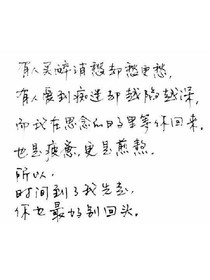 有人买醉消愁却愁更愁,
有人爱到痴迷却越陷越深,
而我在思念的日子里等你回来,
也是疲惫,更是煎熬.
所以.
时间到了我先走,
你也最好别回头.